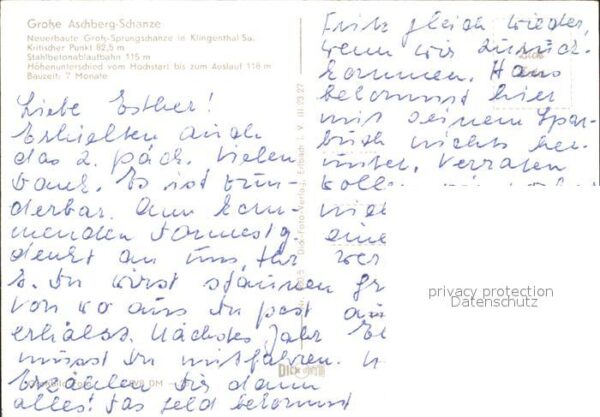 Große Aschberg-Schanze
Neuerbaute Groß-Sprungschanze in Klingenthal Sa.
Kritischer Punkt 82,5 m
Stahlbetonablaufbahn 115 m
Höhenunterschied vom Hochstart bis zum Auslauf 118 m
Bauzeit: 7 Monate
Liebe Esther!
Erhielten auch
das 2. Päck. Vielen
Dank. Es ist wun-
derbar. Am kom-
menden Donnerstg.
denkt an uns, Ihr
2. Du wirst staunen
von wo aus Du post
erhälst. Nächstes Jahr
musst Du mitfahren.
Erzählen Dir dann
alles! Das Geld bekommt
Fritz gleich wieder,
wenn wir zurück-
kommen. Hans
bekommt hier
mit seinem Spar-
buch nichts her-
unter. Verraten
wer
privacy protection
Datenschutz
Dick-Foto-Verlag, Erlbach i. V. III 23 27